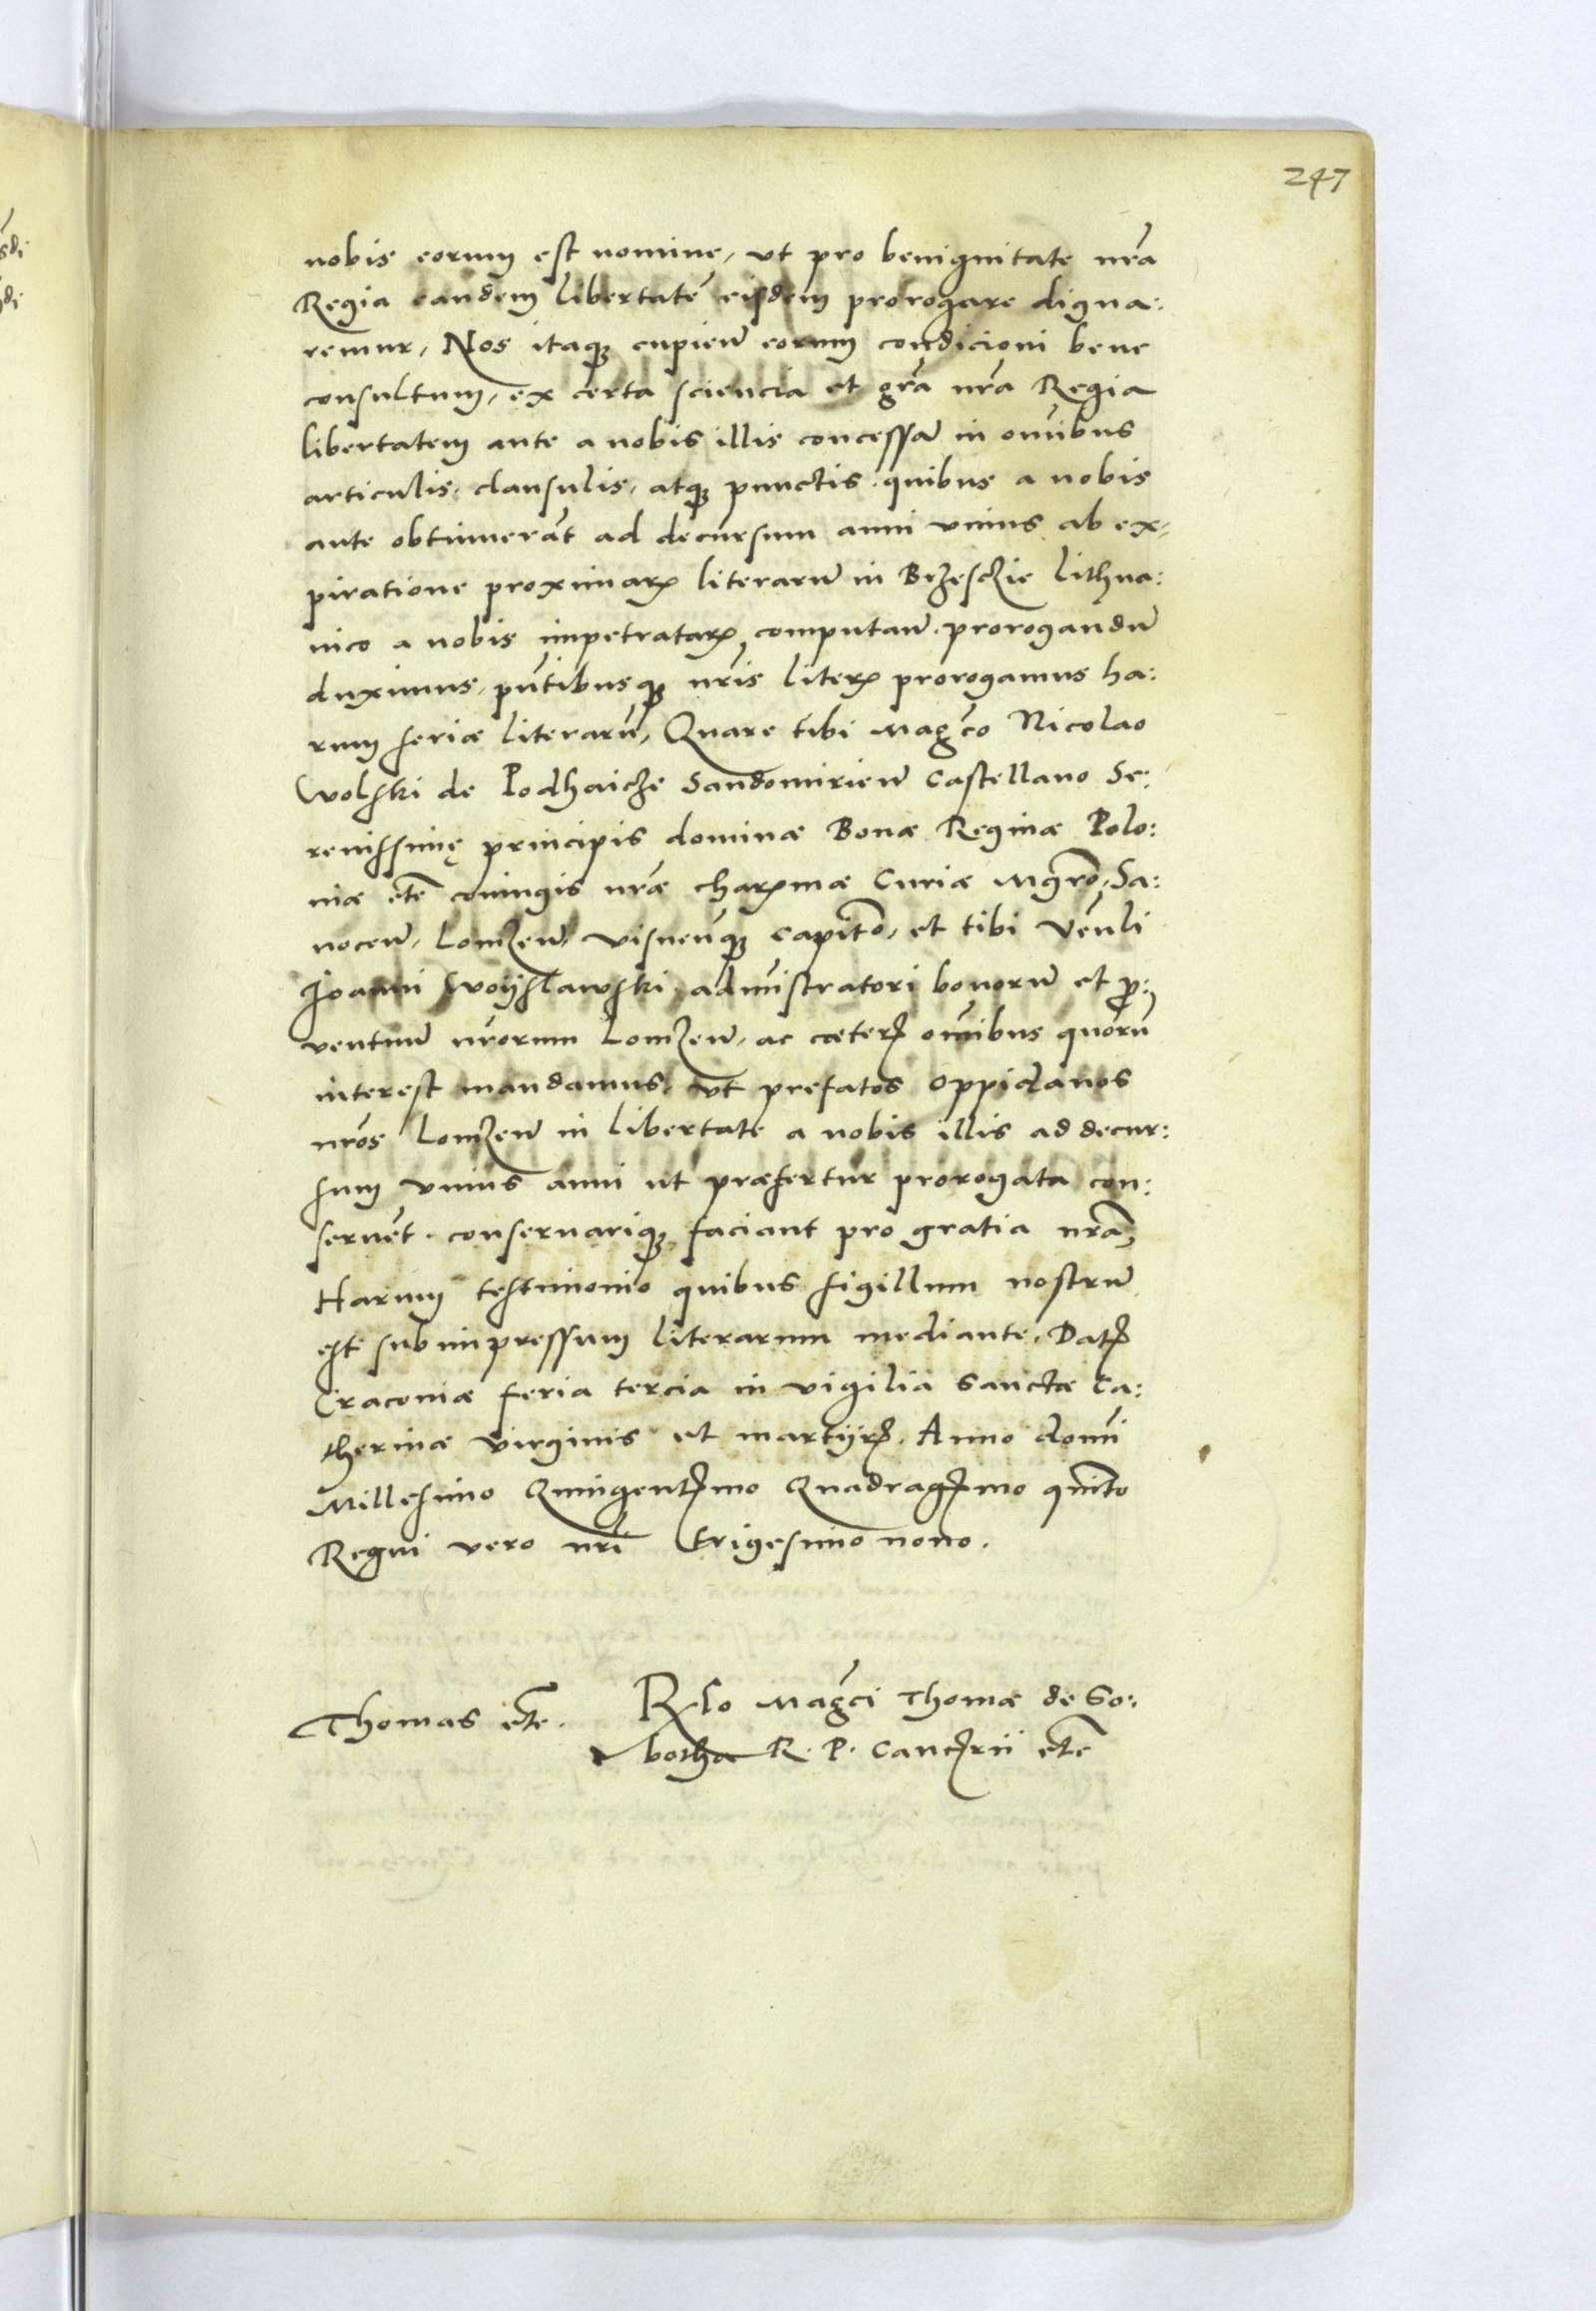 247
nobis eorum est nomine, ut pro benignitate nr̃a
Regia eandem libertatẽ eisdem prorogare digna:
remur, Nos itaqꝫ cupieñ eorum condicioni bene
consultum, ex certa sciencia et gr̃a nr̃a Regia
libertatem ante a nobis illis concessã in om̃ibus
articulis, clausulis, atqꝫ punctis, quibus a nobis
ante obtinuerãt ad decursum anni vnius ab ex-
piratione proximaꝝ literarũ in Brzesczie Lithua:
nico a nobis impetrataꝝ computañ. prorogandũ
duximus, pñtibusqꝫ nr̃is literꝭ prorogamus ha:
rum serie literarũ, Quare tibi Mag̃co Nicolao
Wolski de Podhaicze Sandomirieñ Castellano Se:
renissimę principis dominæ Bonæ Reginæ Polo:
niæ etc̃ coniugis nr̃æ chaꝝmæ Curiæ Mgr̃o, Sa:
noceñ, Lomzeñ, Visneñqꝫ Capit̃o, et tibi Veñli
Joanni Woyslawski, adm̃istratori bonorũ et ꝓ:
ventuũ nr̃orum Lomzeñ, ac cæterꝭ om̃ibus quorũ
interest mandamus, ut prefatos oppidanos
nr̃os Lomzeñ in libertate a nobis illis ad decur:
sum vnius anni ut præfertur prorogata con:
servẽt, conservariqꝫ faciant pro gratia nr̃a,
Harum testimonio quibus sigillum nostrũ
est subimpressum literarum mediante, Datꝭ
Cracoviæ feria tercia in vigilia Sanctæ Ca:
therinæ virginis et martyrꝭ. Anno dom̃i
Millesimo Quingentꝭmo Quadragꝭmo quinto
Regni vero nr̃i trigesimo nono.
Thomas etc̃.
Rl̃o Mag̃ci Thomæ de So:
botha R. P. Cancꝭrii etc̃